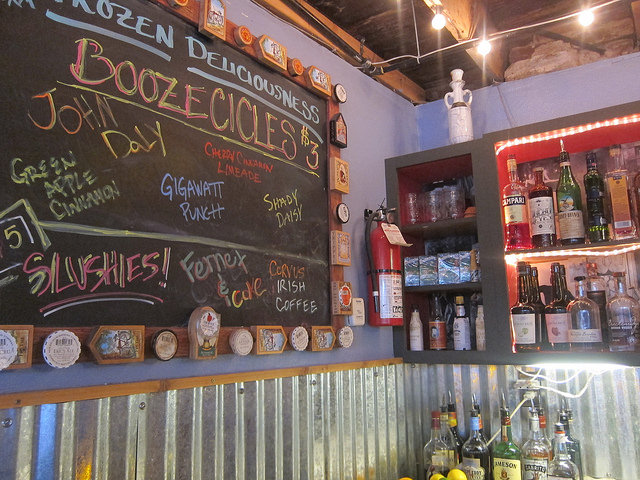 FROZEN DELICIOUSNESS
BOOZECICLES $3
JOHN
DALY
CHERRY CINNAMON
LIMEADE
GREEN
APPLE
CINNAMON
GIGAWATT
PUNCH
SHADY
DAISY
5
SLUSHIES!
Fernet
& Coke
CORVUS
IRISH
COFFEE
CAMPARI
JAMESON